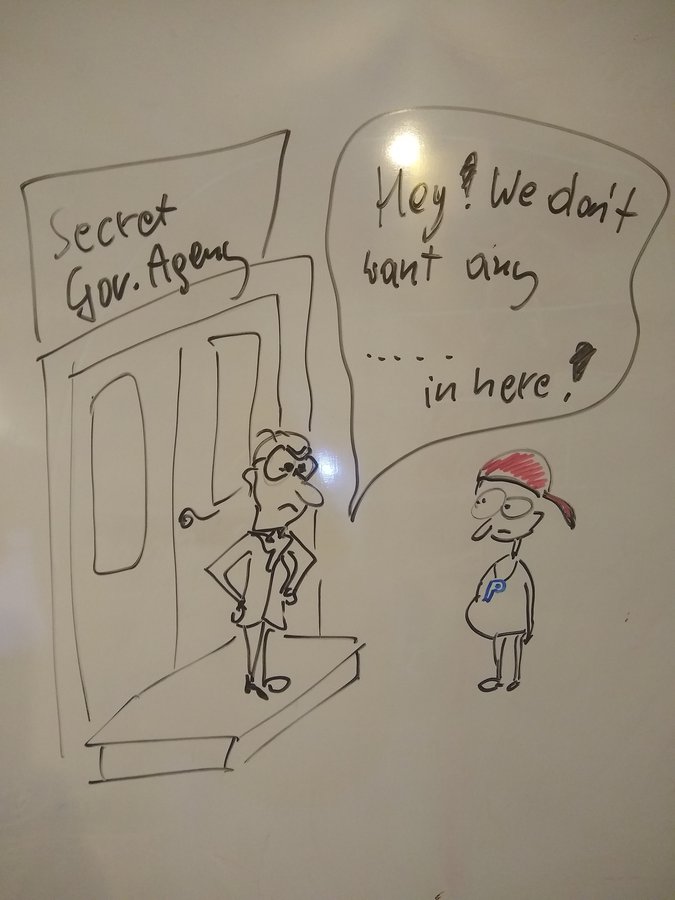 Secret
Gov. Agency
Hey! We don't
want any
......
in here!
P